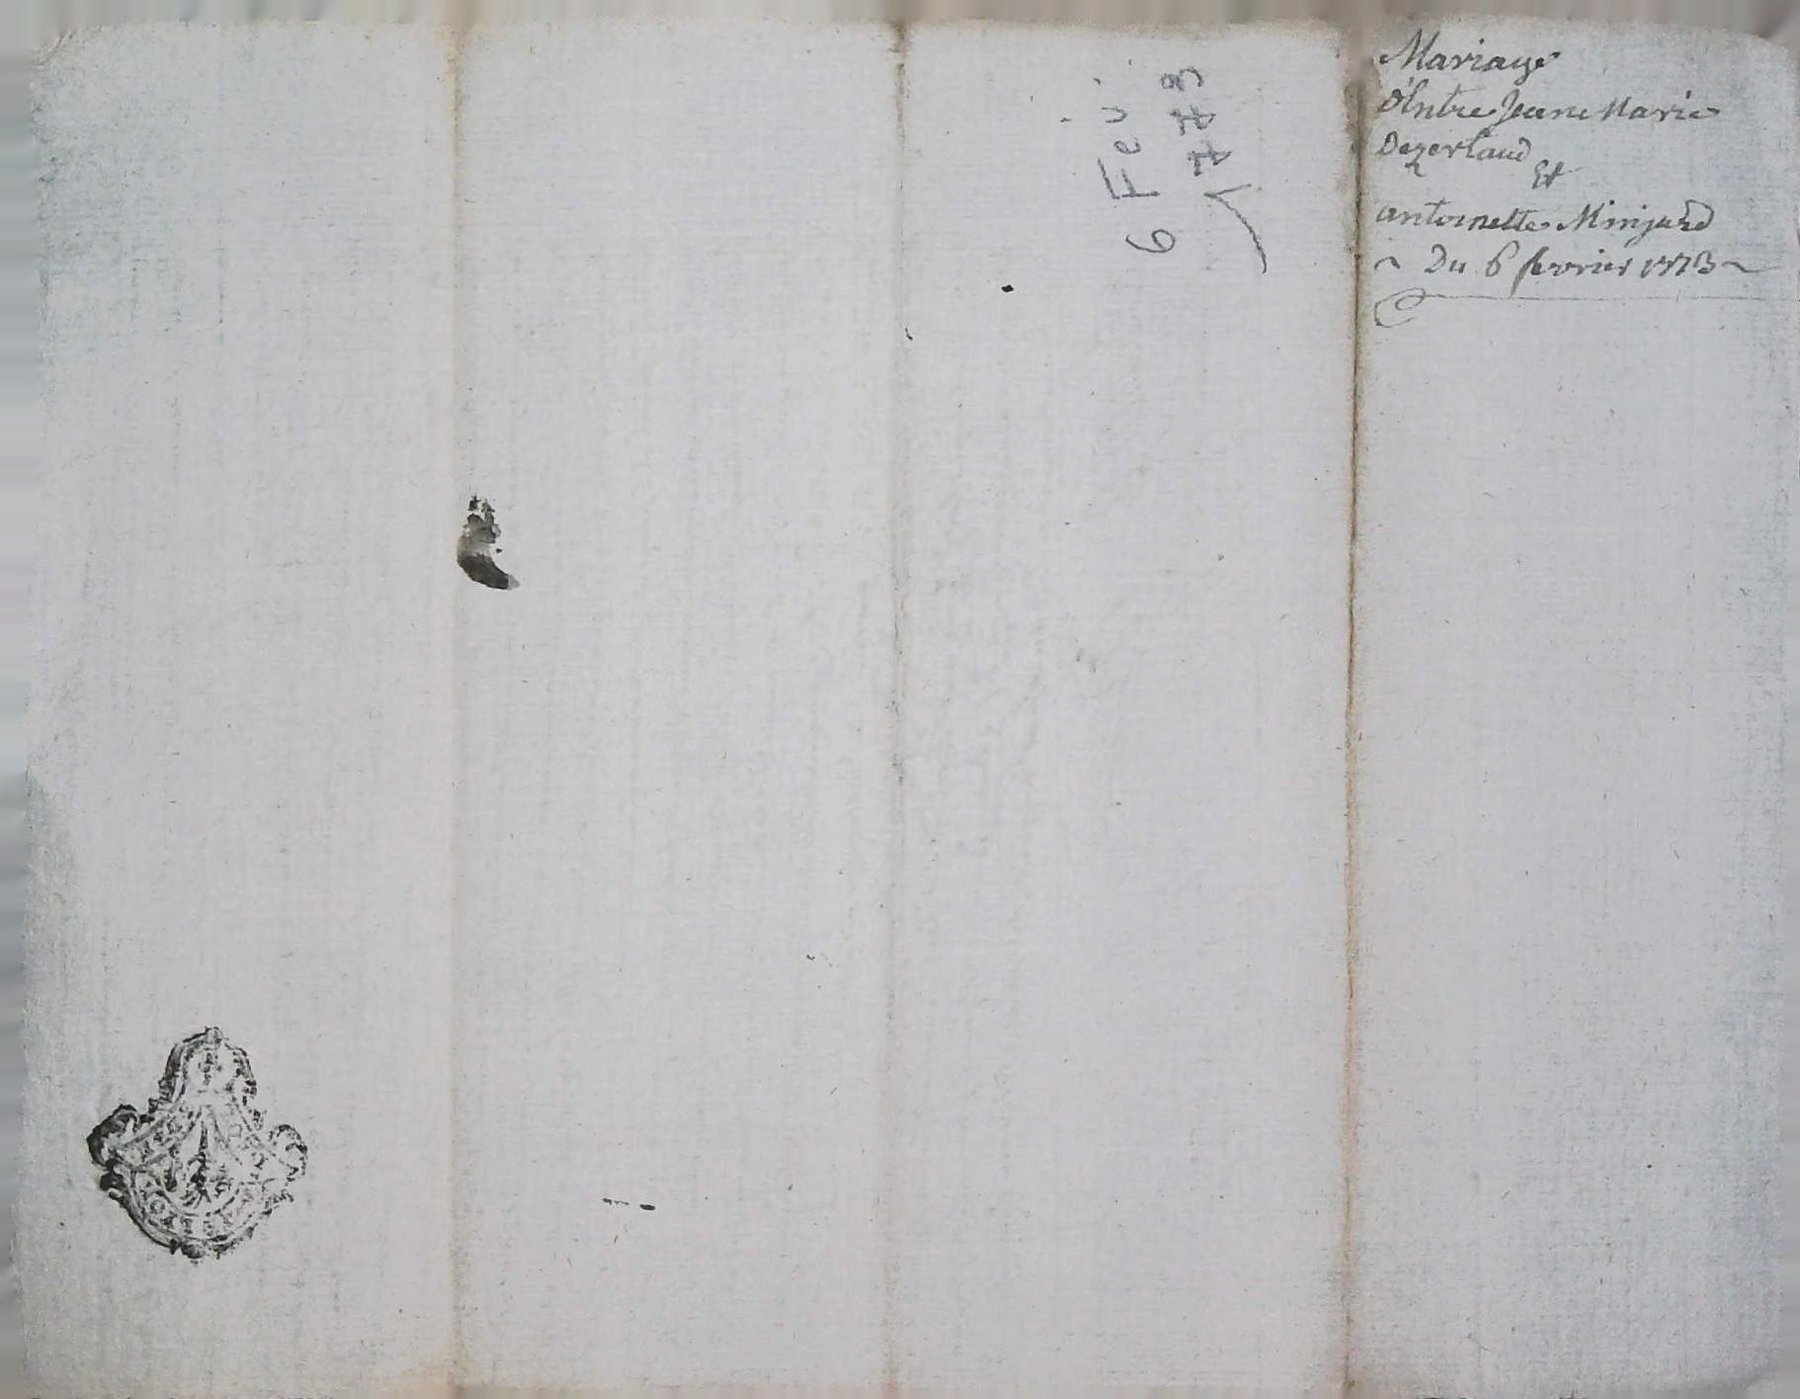 Mariage
D'Entre Jeane Marie
Dezerlaud
Et
antoinette Minjard
~ Du 6 fevrier 1773 ~
6 Fev.
1773